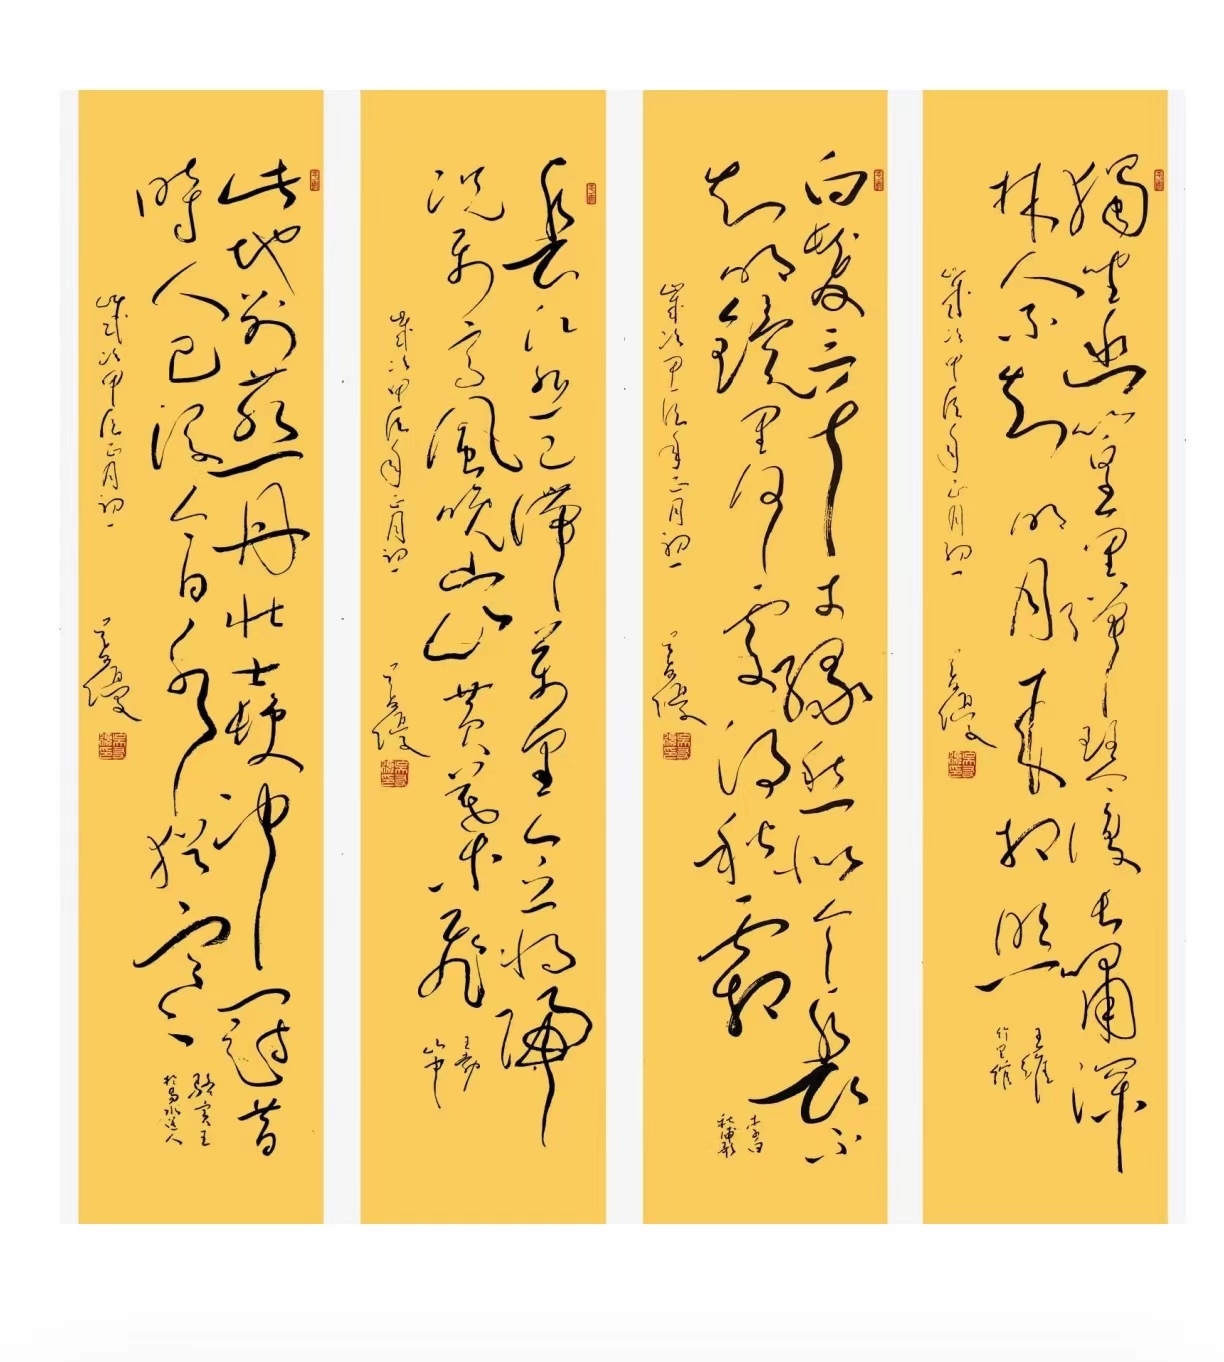 獨坐幽篁里彈琴復長嘯深
林人不知明月來相照
王維
竹里館
歲次甲辰年正月初一
白髮三千丈緣愁似个長不
知明鏡里何處得秋霜
李白
秋浦歌
歲次甲辰年正月初一
長江悲已滯萬里念將歸
況屬高風晚山山黃葉飛
王勃
山中
歲次甲辰年正月初一
此地別燕丹壯士髮冲冠昔
時人已沒今日水猶寒
駱賓王
於易水送人
歲次甲辰正月初一